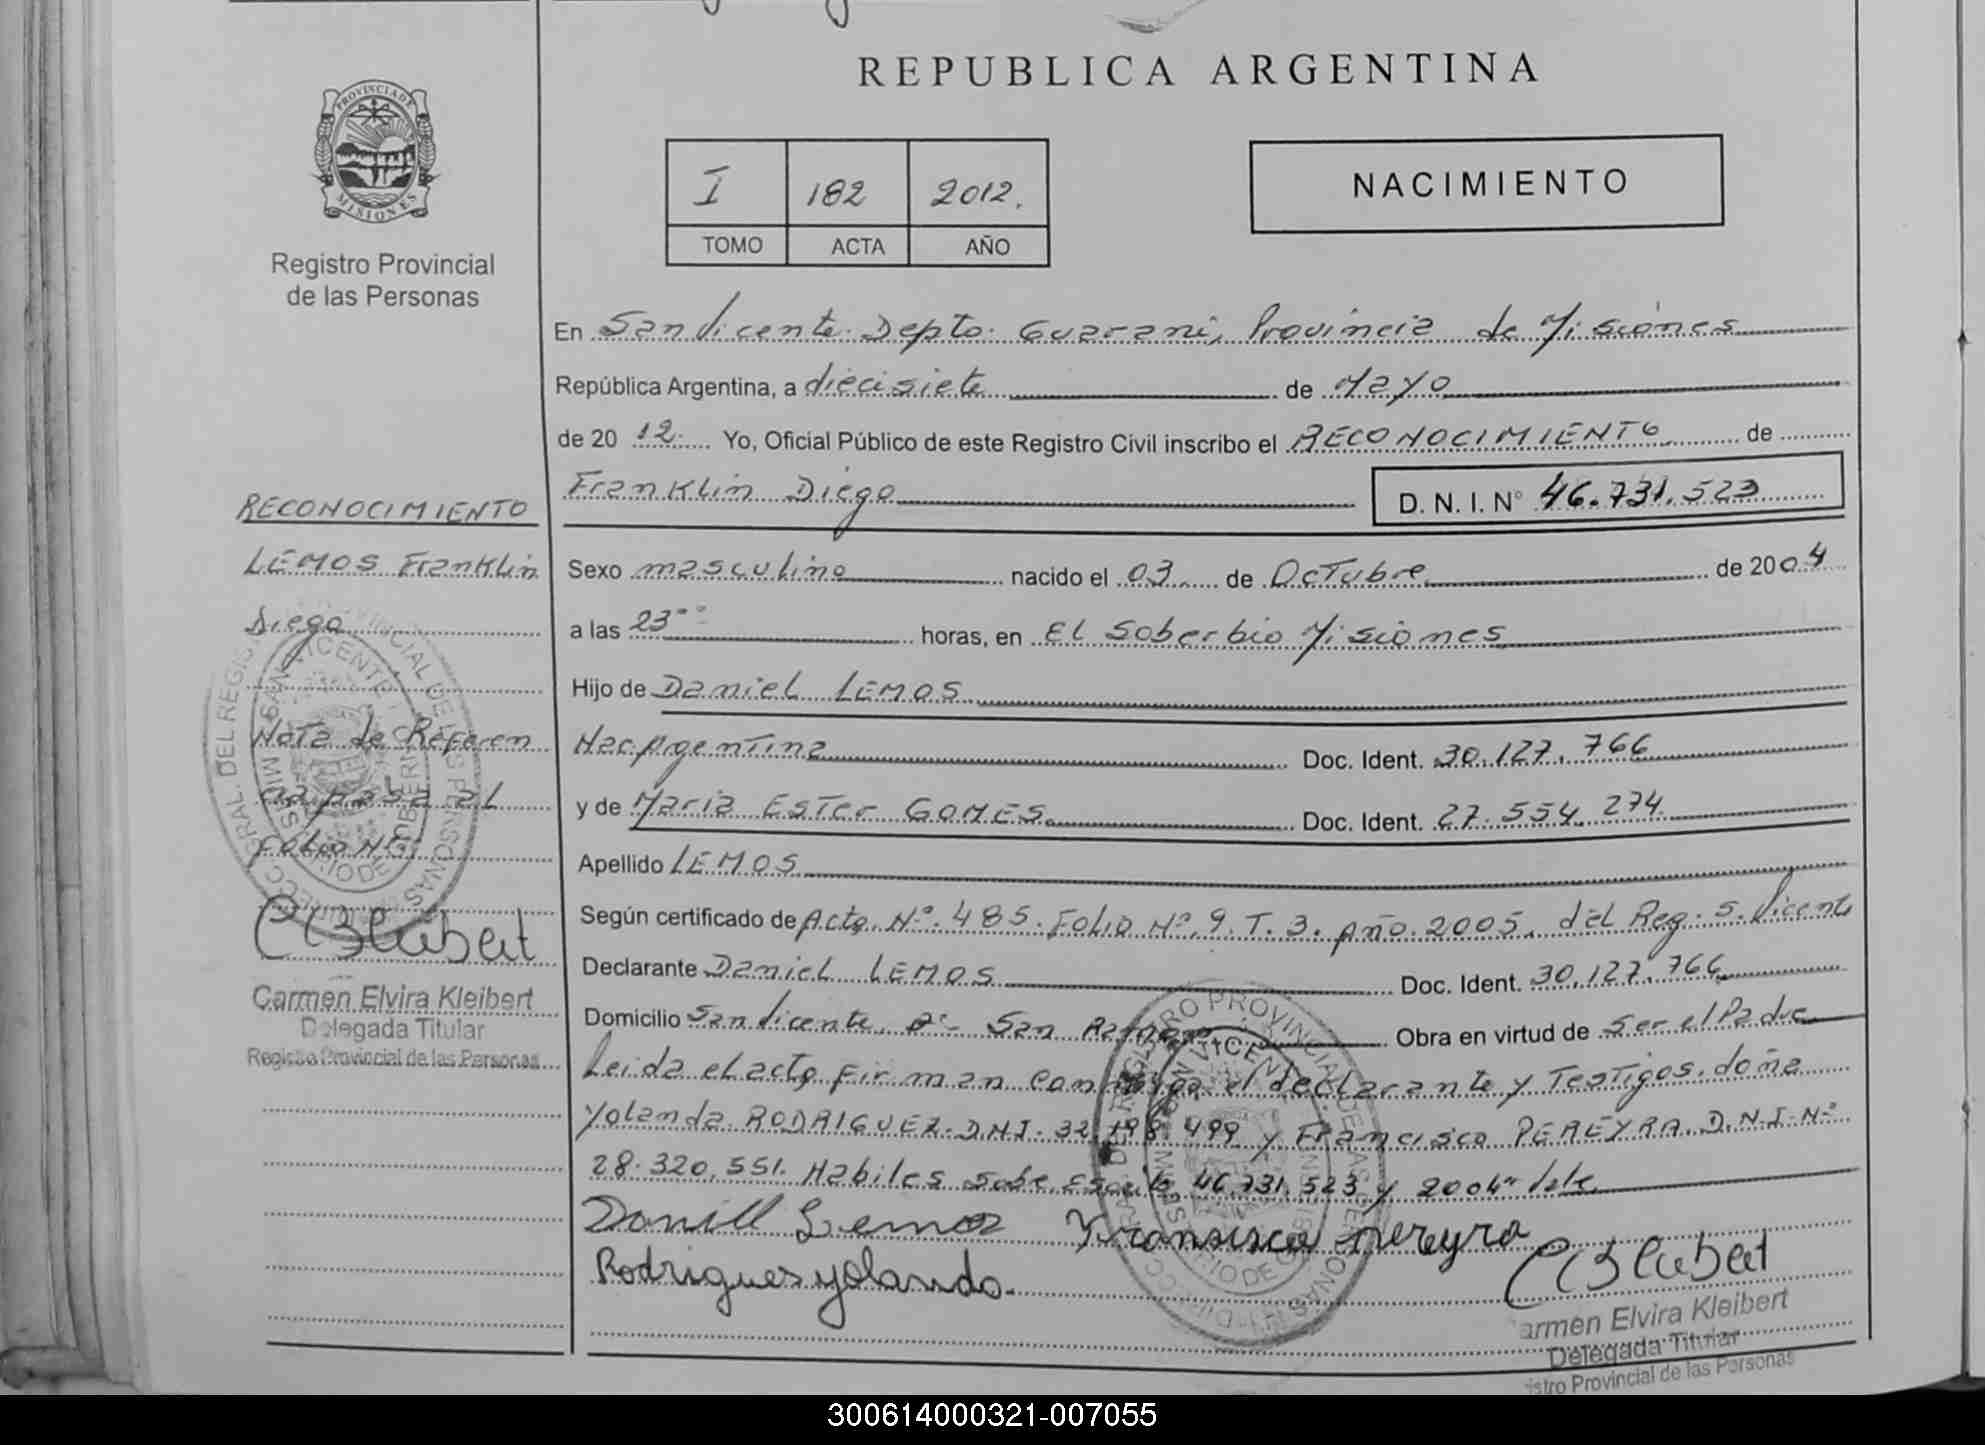 REPUBLICA ARGENTINA
PROVINCIA DE
MISIONES
Registro Provincial
de las Personas
I 182 2012.
TOMO ACTA AÑO
NACIMIENTO
En San Vicente Depto. Guarani, Provincia de Misiones
República Argentina, a diecisiete de Mayo
de 20 12 Yo, Oficial Público de este Registro Civil inscribo el RECONOCIMIENTO de
Franklin Diego D. N. I. N° 46.731.523
Sexo masculino nacido el 03 de Octubre de 2004
a las 23 horas, en El Soberbio Misiones
Hijo de Daniel LEMOS
Nac. Argentina Doc. Ident. 30.127.766
y de Maria Ester GOMES Doc. Ident. 27.554.274
Apellido LEMOS
Según certificado de Acta N° 485. Folio N° 9. T. 3. Año 2005. del Reg. S. Vicente
Declarante Daniel LEMOS Doc. Ident. 30.127.766
Domicilio San Vicente San Obra en virtud de Ser el Padre
Leida el acta firman el declarante y Testigos. doña
Yolanda RODRIGUEZ. D.N.I. 32.198.499 y Francisca PEREYRA. D.N.I. N°
28.320.551. Habiles 46.731.523 y 2004 Vale
Daniel Lemos Fransisca pereyra
Rodrigues yolanda.
Carmen Elvira Kleibert
Delegada Titular
istro Provincial de las Personas
RECONOCIMIENTO
LEMOS Franklin
Diego
Nota de Referen
al
folio N°
Carmen Elvira Kleibert
Delegada Titular
Registro Provincial de las Personas
300614000321-007055